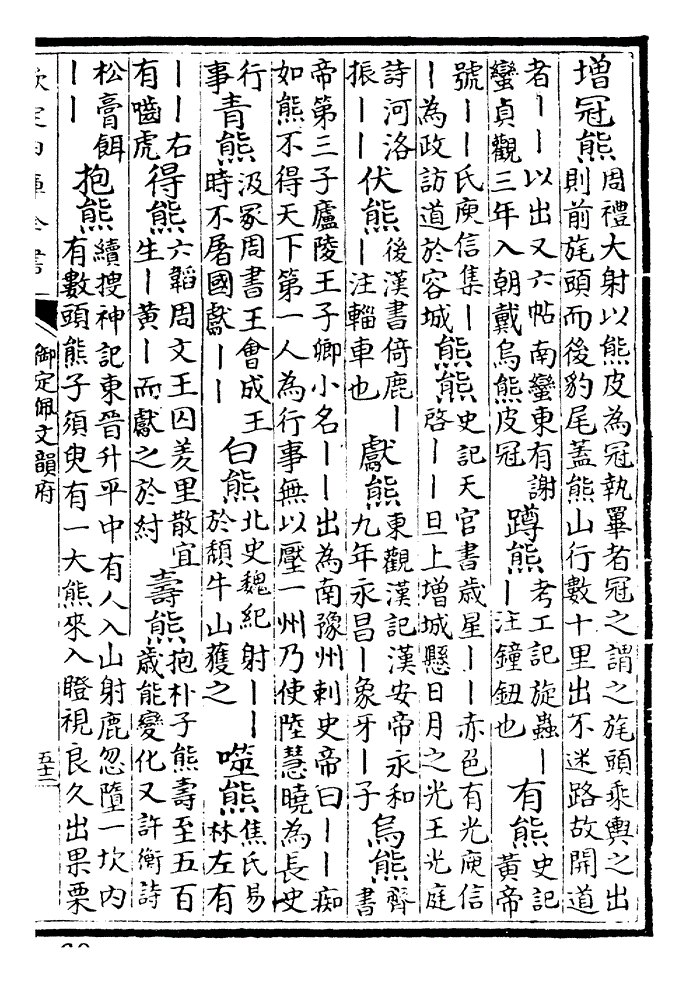 增冠熊
周禮大射以熊皮為冠執罼者冠之謂之旄頭乘輿之出
則前旄頭而後豹尾蓋熊山行數十里出不迷路故開道
者——以出又六帖南蠻東有謝
蠻貞觀三年入朝戴烏熊皮冠
蹲熊
考工記旋蟲—
—注鐘鈕也
有熊
史記
黃帝
號——氏庾信集—
—為政訪道於容城
熊熊
史記天官書歲星——赤色有光庾信
啓——旦上增城懸日月之光王光庭
詩河洛
振——
伏熊
後漢書倚鹿—
—注輜車也
獻熊
東觀漢記漢安帝永和
九年永昌—象牙—子
烏熊
齊
書
帝第三子廬陵王子卿小名——出為南豫州刺史帝曰——痴
如熊不得天下第一人為行事無以壓一州乃使陸慧曉為長史
行
事
青熊
汲冢周書王會成王
時不屠國獻——
白熊
北史魏紀射——
於頽牛山獲之
噬熊
焦氏易
林左有
——右
有嚙虎
得熊
六韜周文王囚羑里散宜
生—黃—而獻之於紂
壽熊
抱朴子熊壽至五百
歲能變化又許衡詩
松膏餌
——
抱熊
續搜神記東晉升平中有人入山射鹿忽墮一坎內
有數頭熊子須臾有一大熊來入瞪視良久出果栗
欽定四庫全書
御定佩文韻府
五十二